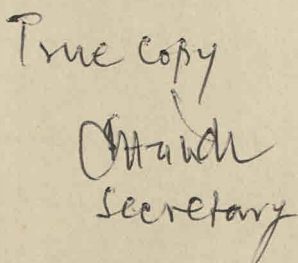 True Copy
Secretary